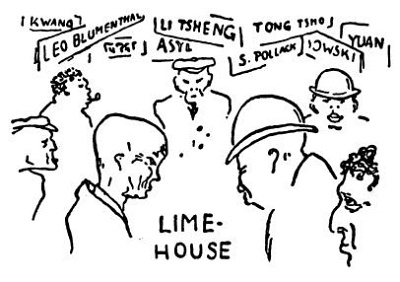 KWANG
LEO BLUMENTHAL
LI TSHENG
ASYL
TONG TSHO
S. POLLACK
IOWSKI
YUAN
LIME-
HOUSE